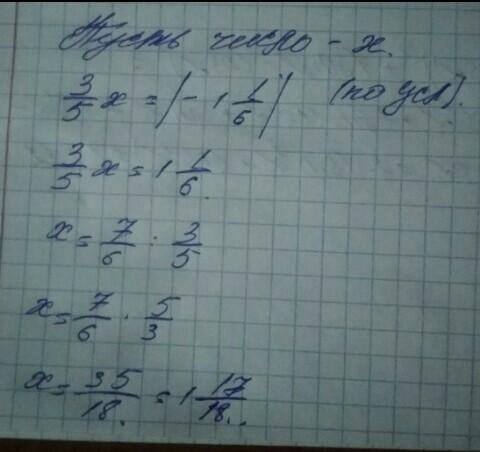 Пусть число - x.
3/5 x = |- 1 1/6| (по усл).
3/5 x = 1 1/6.
x = 7/6 : 3/5
x = 7/6 · 5/3
x = 35/18. = 1 17/18..